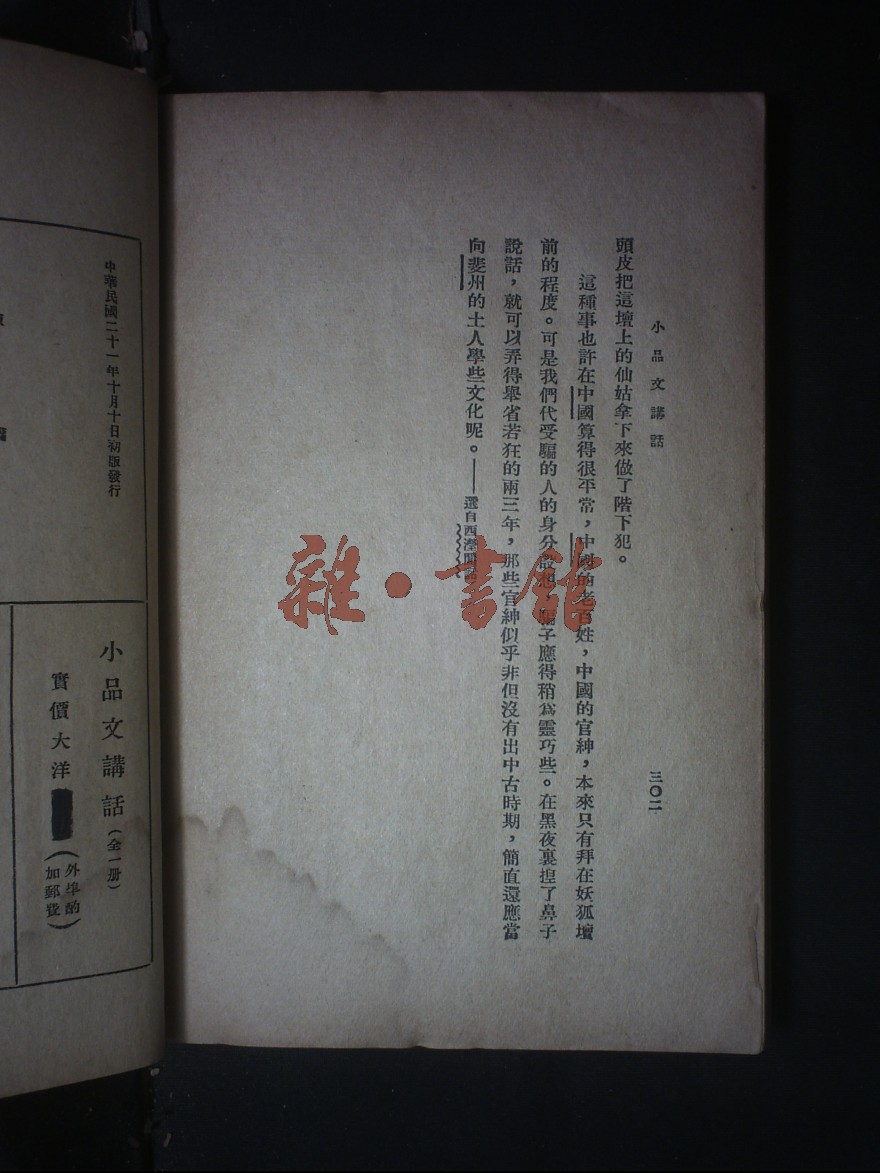 小品文講話
三〇二
頭皮把這壇上的仙姑拿下來做了階下犯。
這種事也許在中國算得很平常，中國的老百姓，中國的官紳，本來只有拜在妖狐壇
前的程度。可是我們代受騙的人的身分設想，騙子應得稍爲靈巧些。在黑夜裏揑了鼻子
說話，就可以弄得舉省若狂的兩三年，那些官紳似乎非但沒有出中古時期，簡直還應當
向斐州的土人學些文化呢。——選自西瀅閒話
雜·書館
中華民國二十一年十月十日初版發行
小品文講話（全一册）
實價大洋
（外埠酌加郵費）